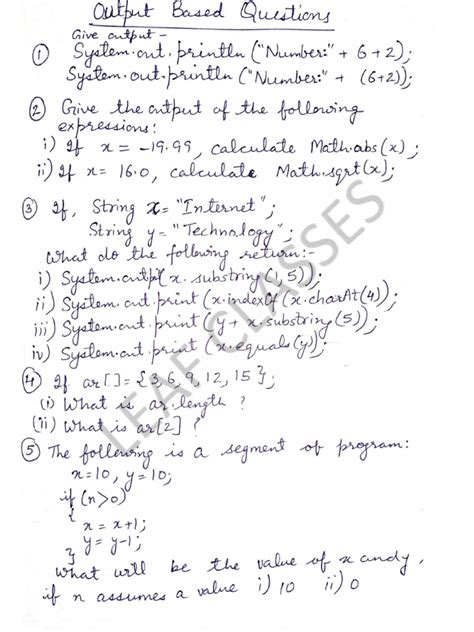 Output Based Questions
Give output -
① System.out.println ("Number:" + 6+2);
System.out.println ("Number:" + (6+2));
② Give the output of the following
expressions:
i) If x = -19.99, calculate Math.abs(x);
ii) If x = 16.0, calculate Math.sqrt(x);
③ If, String x = "Internet";
String y = "Technology";
What do the following return:-
i) System.out(x.substring(1,5));
ii) System.out.print (x.indexOf(x.charAt(4));
iii) System.out.print (y + x.substring(5));
iv) System.out.print (x.equals(y));
④ If ar[] = {3,6,9,12,15};
(i) What is ar.length ?
(ii) What is ar[2] ?
⑤ The following is a segment of program:
x=10, y=10;
if (n>0)
{
x = x+1;
y = y-1;
}
What will be the value of x and y,
if n assumes a value i) 10 ii) 0
LEAF CLASSES